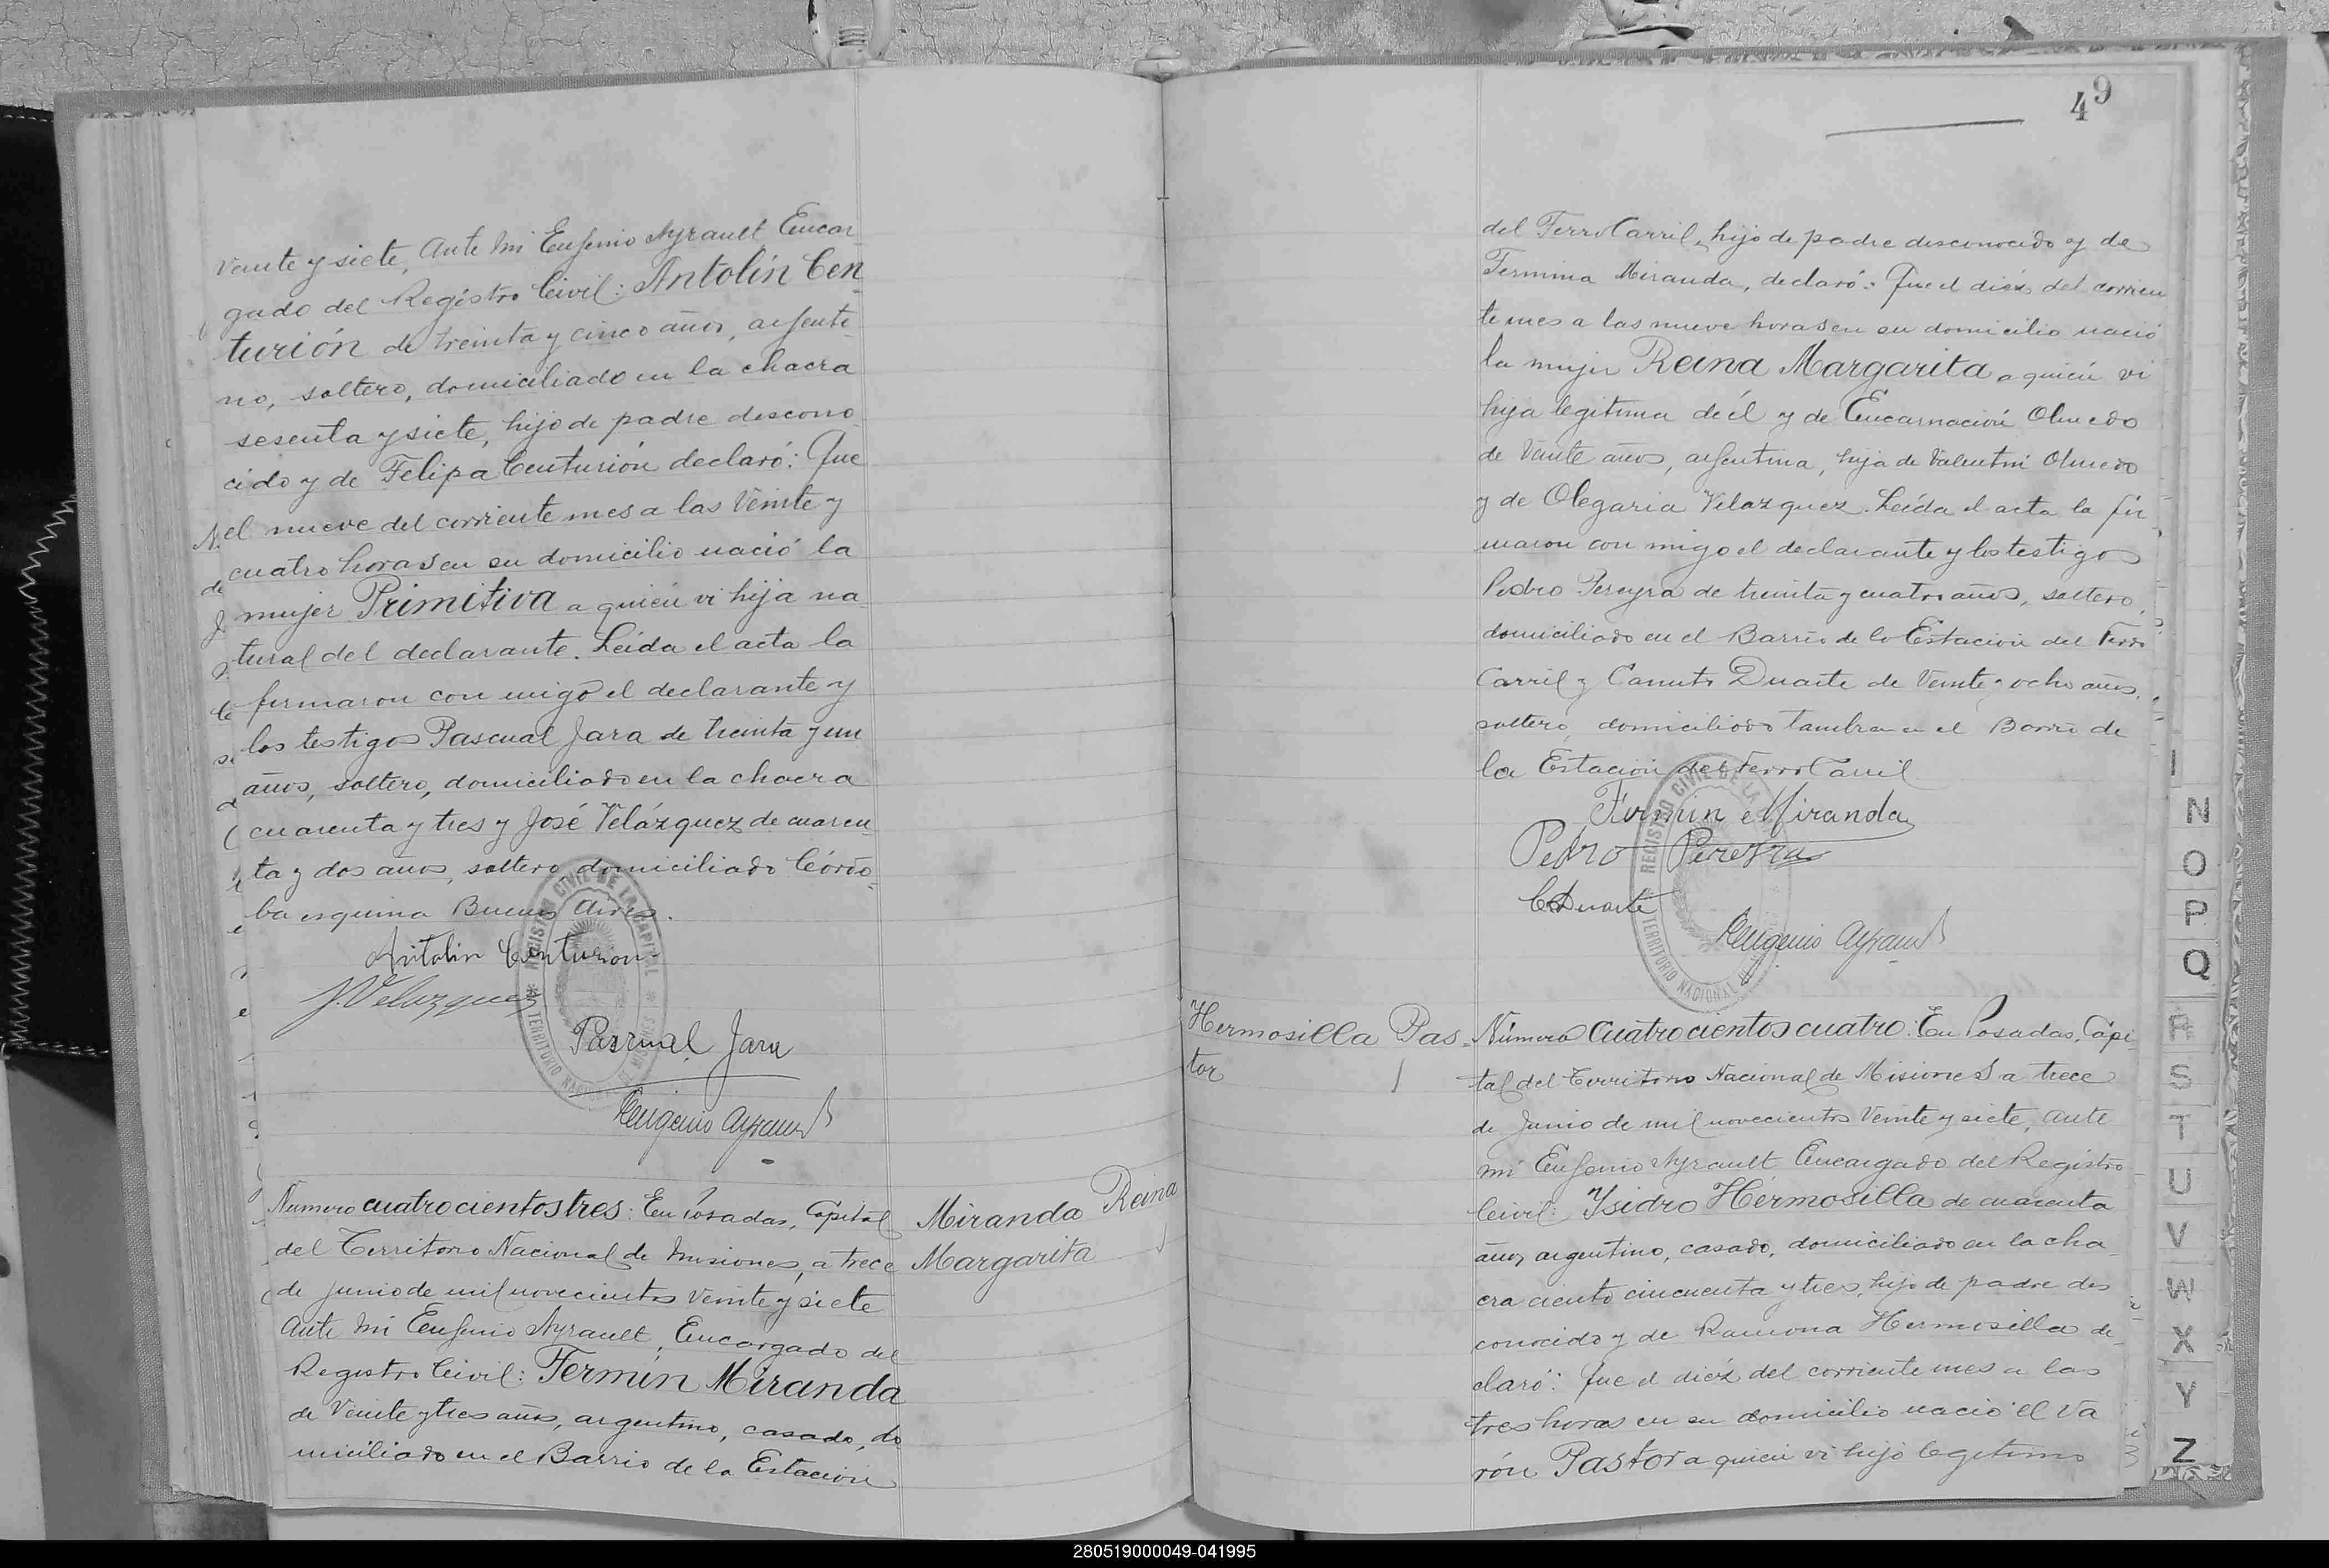 veinte y siete, Ante mi Eugenio Ayrault Encar
gado del Registro Civil: Antolín Cen
turión de treinta y cinco años, argenti
no, soltero, domiciliado en la chacra
sesenta y siete, hijo de padre descono
cido y de Felipa Centurión declaró: Que
el nueve del corriente mes a las Veinte y
cuatro horas en su domicilio nació la
mujer Primitiva a quién vi hija na
tural del declarante. Leída el acta la
firmaron con migo el declarante y
los testigos Pascual Jara de treinta y un
años, soltero, domiciliado en la chacra
cuarenta y tres y José Velázquez de cuaren
ta y dos años, soltero domiciliado Córdo
ba esquina Buenos Aires.
Antolin Centurion
J. Velazquez
Pascual Jara
Eugenio Ayrault
REGISTRO CIVIL DE LA CAPITAL
TERRITORIO NACIONAL DE MISIONES
Miranda Reina
Margarita
Número cuatrocientos tres: En Posadas, Capital
del Territorio Nacional de Misiones, a trece
de Junio de mil novecientos veinte y siete
Ante mi Eugenio Ayrault, Encargado del
Registro Civil: Fermín Miranda
de Veinte y tres años, argentino, casado, do
miciliado en el Barrio de la Estación
49
del FerroCarril, hijo de padre desconocido y de
Fermina Miranda, declaró: Que el diéz del corrien
te mes a las nueve horas en su domicilio nació
la mujer Reina Margarita a quién vi
hija legitima de él y de Encarnación Olmedo
de Veinte años, argentina, hija de Valentín Olmedo
y de Olegaria Velazquez. Leída el acta la fir
maron con migo el declarante y los testigos
Pedro Pereyra de treinta y cuatro años, soltero,
domiciliado en el Barrio de la Estación del Ferro
Carril y Canuto Duarte de Veinte y ocho años,
soltero, domiciliado tambien en el Barrio de
la Estación del FerroCarril
Fermin Miranda
Pedro Pereyra
C Duarte
Eugenio Ayrault
REGISTRO CIVIL DE LA
TERRITORIO NACIONAL
Hermosilla Pas
tor
Número Cuatrocientos cuatro: En Posadas, Capi
tal del Territorio Nacional de Misiones a trece
de Junio de mil novecientos Veinte y siete, Ante
mi Eugenio Ayrault Encargado del Registro
Civil: Ysidro Hermosilla de cuarenta
años, argentino, casado, domiciliado en la cha
cra ciento cincuenta y tres, hijo de padre des
conocido y de Ramona Hermosilla de
claró: Que el diéz del corriente mes a las
tres horas en su domicilio nació el Va
rón Pastor a quién vi hijo legitimo
I
N
O
P
Q
R
S
T
U
V
W
X
Y
Z
280519000049-041995